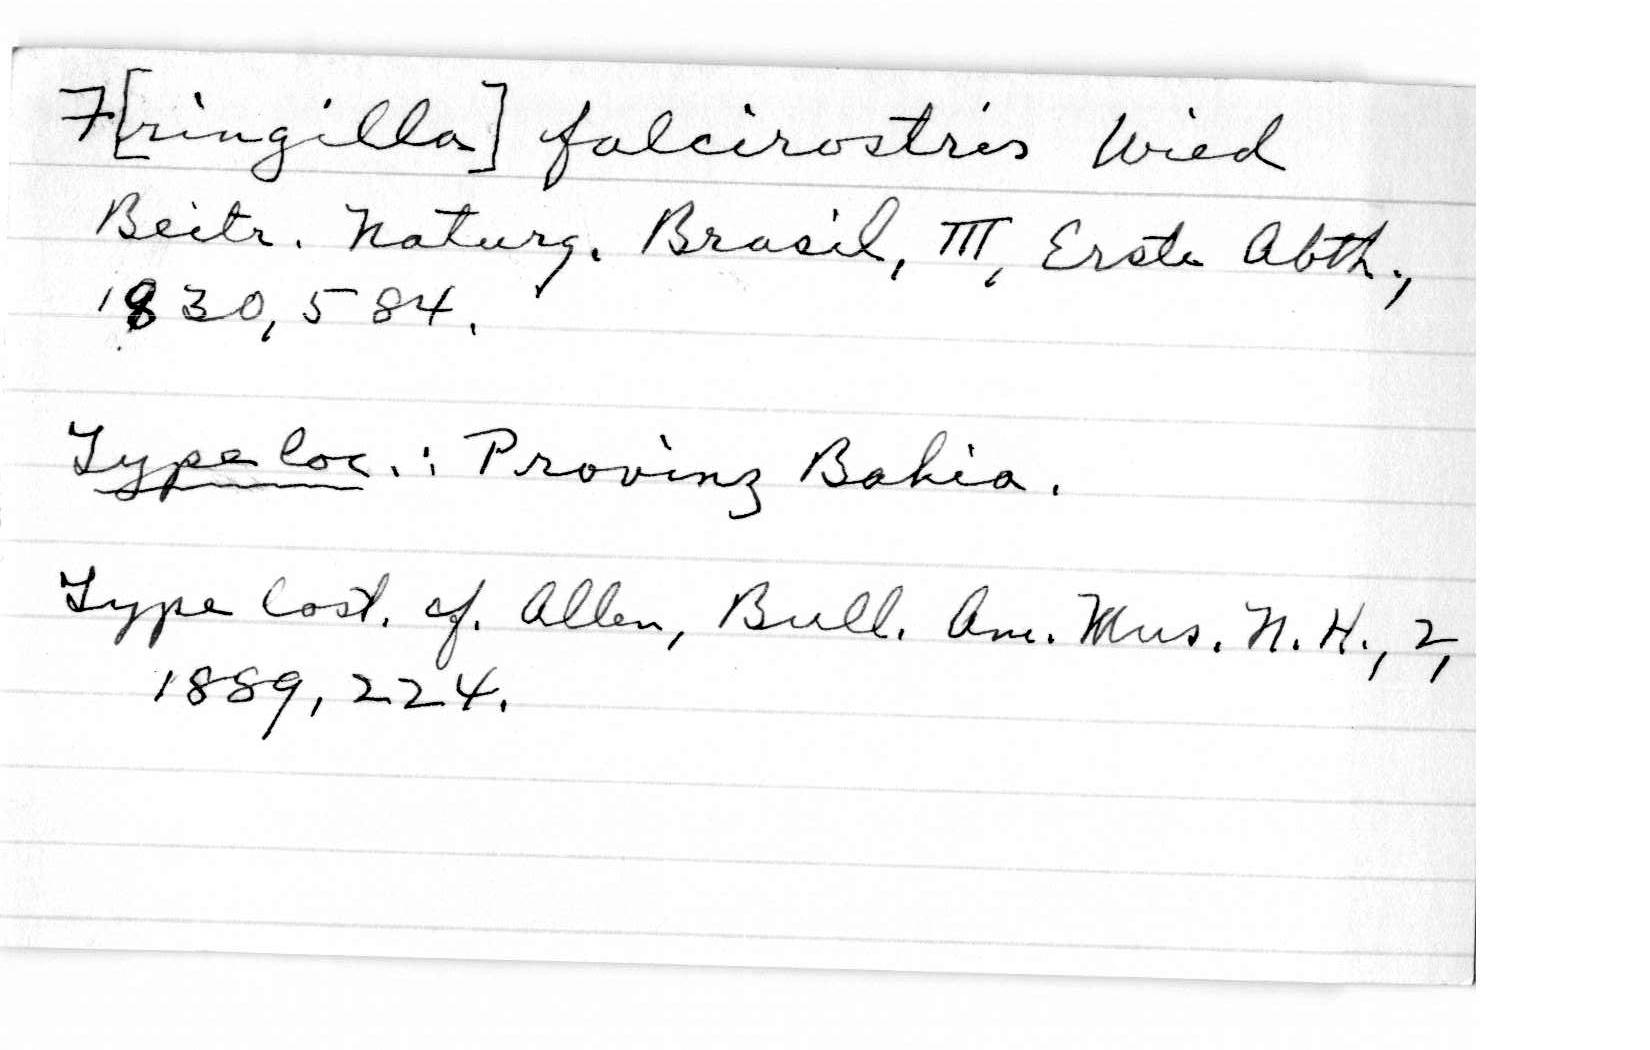 F[ringilla] falcirostris Wied
Beitr. Naturg. Brasil, III, Erste Abth.,
1830, 584.
Type loc.: Provinz Bahia.
Type lost. cf. Allen, Bull. Am. Mus. N. H., 2,
1889, 224.